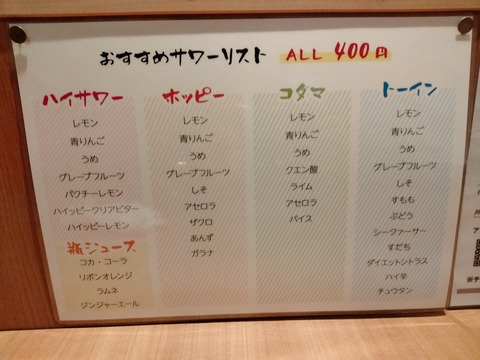 おすすめサワーリスト ALL 400円
ハイサワー
レモン
青りんご
うめ
グレープフルーツ
パクチーレモン
ハイッピークリアビター
ハイッピーレモン
瓶ジュース
コカ・コーラ
リボンオレンジ
ラムネ
ジンジャーエール
ホッピー
レモン
青りんご
うめ
グレープフルーツ
しそ
アセロラ
ザクロ
あんず
ガラナ
コダマ
レモン
青りんご
うめ
クエン酸
ライム
アセロラ
バイス
トーイン
レモン
青りんご
うめ
グレープフルーツ
しそ
すもも
ぶどう
シークァーサー
すだち
ダイエットシトラス
ハイ辛
チュウタン